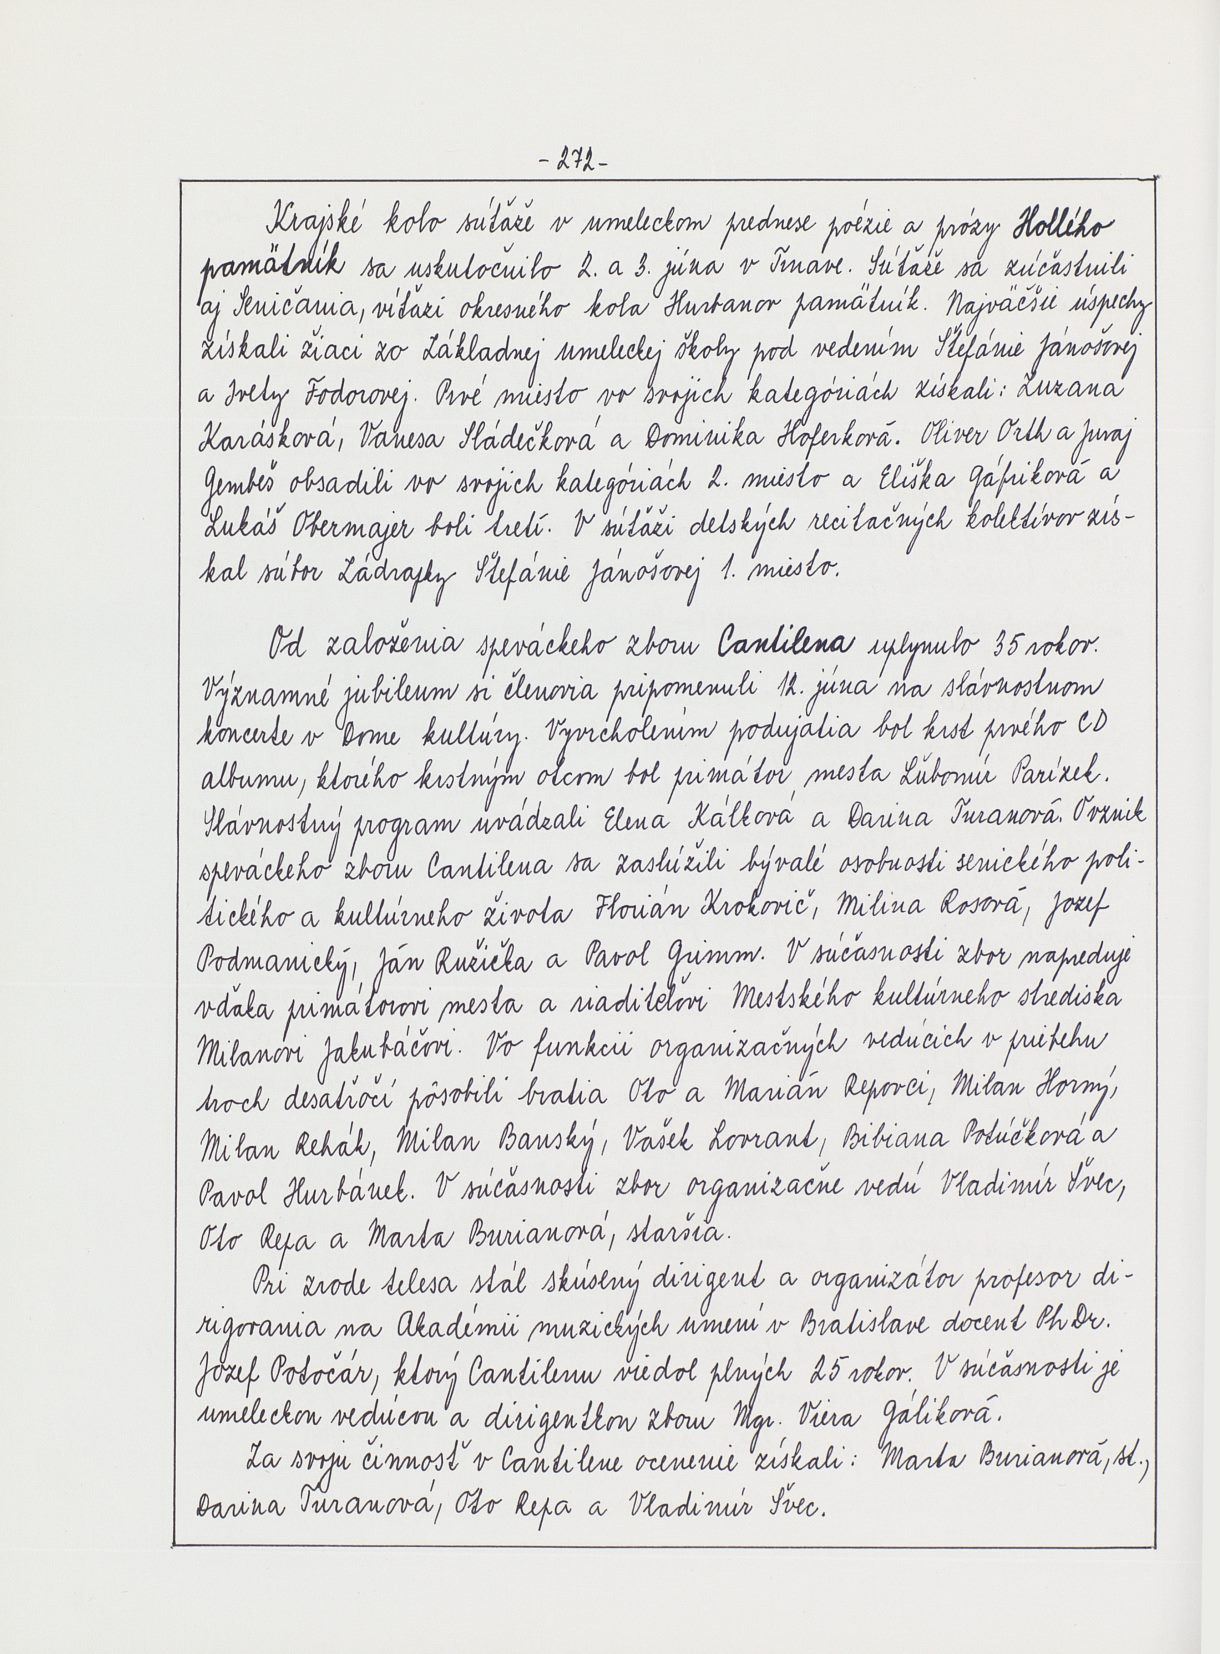 - 272 -
Krajské kolo súťaže v umeleckom prednese poézie a prózy Hollého
pamätník sa uskutočnilo 2. a 3. júna v Trnave. Súťaže sa zúčastnili
aj Seničania, víťazi okresného kola Hurbanov pamätník. Najväčšie úspechy
získali žiaci zo Základnej umeleckej školy pod vedením Štefánie Jánošovej
a Ivety Fodorovej. Prvé miesto vo svojich kategóriách získali: Zuzana
Karásková, Vanesa Sládečková a Dominika Hoferková. Oliver Orth a Juraj
Gembeš obsadili vo svojich kategóriách 2. miesto a Eliška Gáfriková a
Lukáš Obermajer boli tretí. V súťaži detských recitačných kolektívov zís-
kal súbor Zádrapky Štefánie Jánošovej 1. miesto.
Od založenia speváckeho zboru Cantilena uplynulo 35 rokov.
Významné jubileum si členovia pripomenuli 12. júna na slávnostnom
koncerte v Dome kultúry. Vyvrcholením podujatia bol krst prvého CD
albumu, ktorého krstným otcom bol primátor mesta Ľubomír Parízek.
Slávnostný program uvádzali Elena Kálková a Darina Turanová. O vznik
speváckeho zboru Cantilena sa zaslúžili bývalé osobnosti senického poli-
tického a kultúrneho života Florián Krokovič, Milina Rosová, Jozef
Podmanický, Ján Ružička a Pavol Grimm. V súčasnosti zbor napreduje
vďaka primátorovi mesta a riaditeľovi Mestského kultúrneho strediska
Milanovi Jakubáčovi. Vo funkcii organizačných vedúcich v priebehu
troch desaťročí pôsobili bratia Oto a Marián Repovci, Milan Horný,
Milan Rehák, Milan Banský, Vašek Lovrant, Bibiana Potúčková a
Pavol Hurbánek. V súčasnosti zbor organizačne vedú Vladimír Švec,
Oto Repa a Marta Burianová, staršia.
Pri zrode telesa stál skúsený dirigent a organizátor profesor di-
rigovania na Akadémii muzických umení v Bratislave docent PhDr.
Jozef Potočár, ktorý Cantilenu viedol plných 25 rokov. V súčasnosti je
umeleckou vedúcou a dirigentkou zboru Mgr. Viera Gáliková.
Za svoju činnosť v Cantilene ocenenie získali: Marta Burianová, st.,
Darina Turanová, Oto Repa a Vladimír Švec.